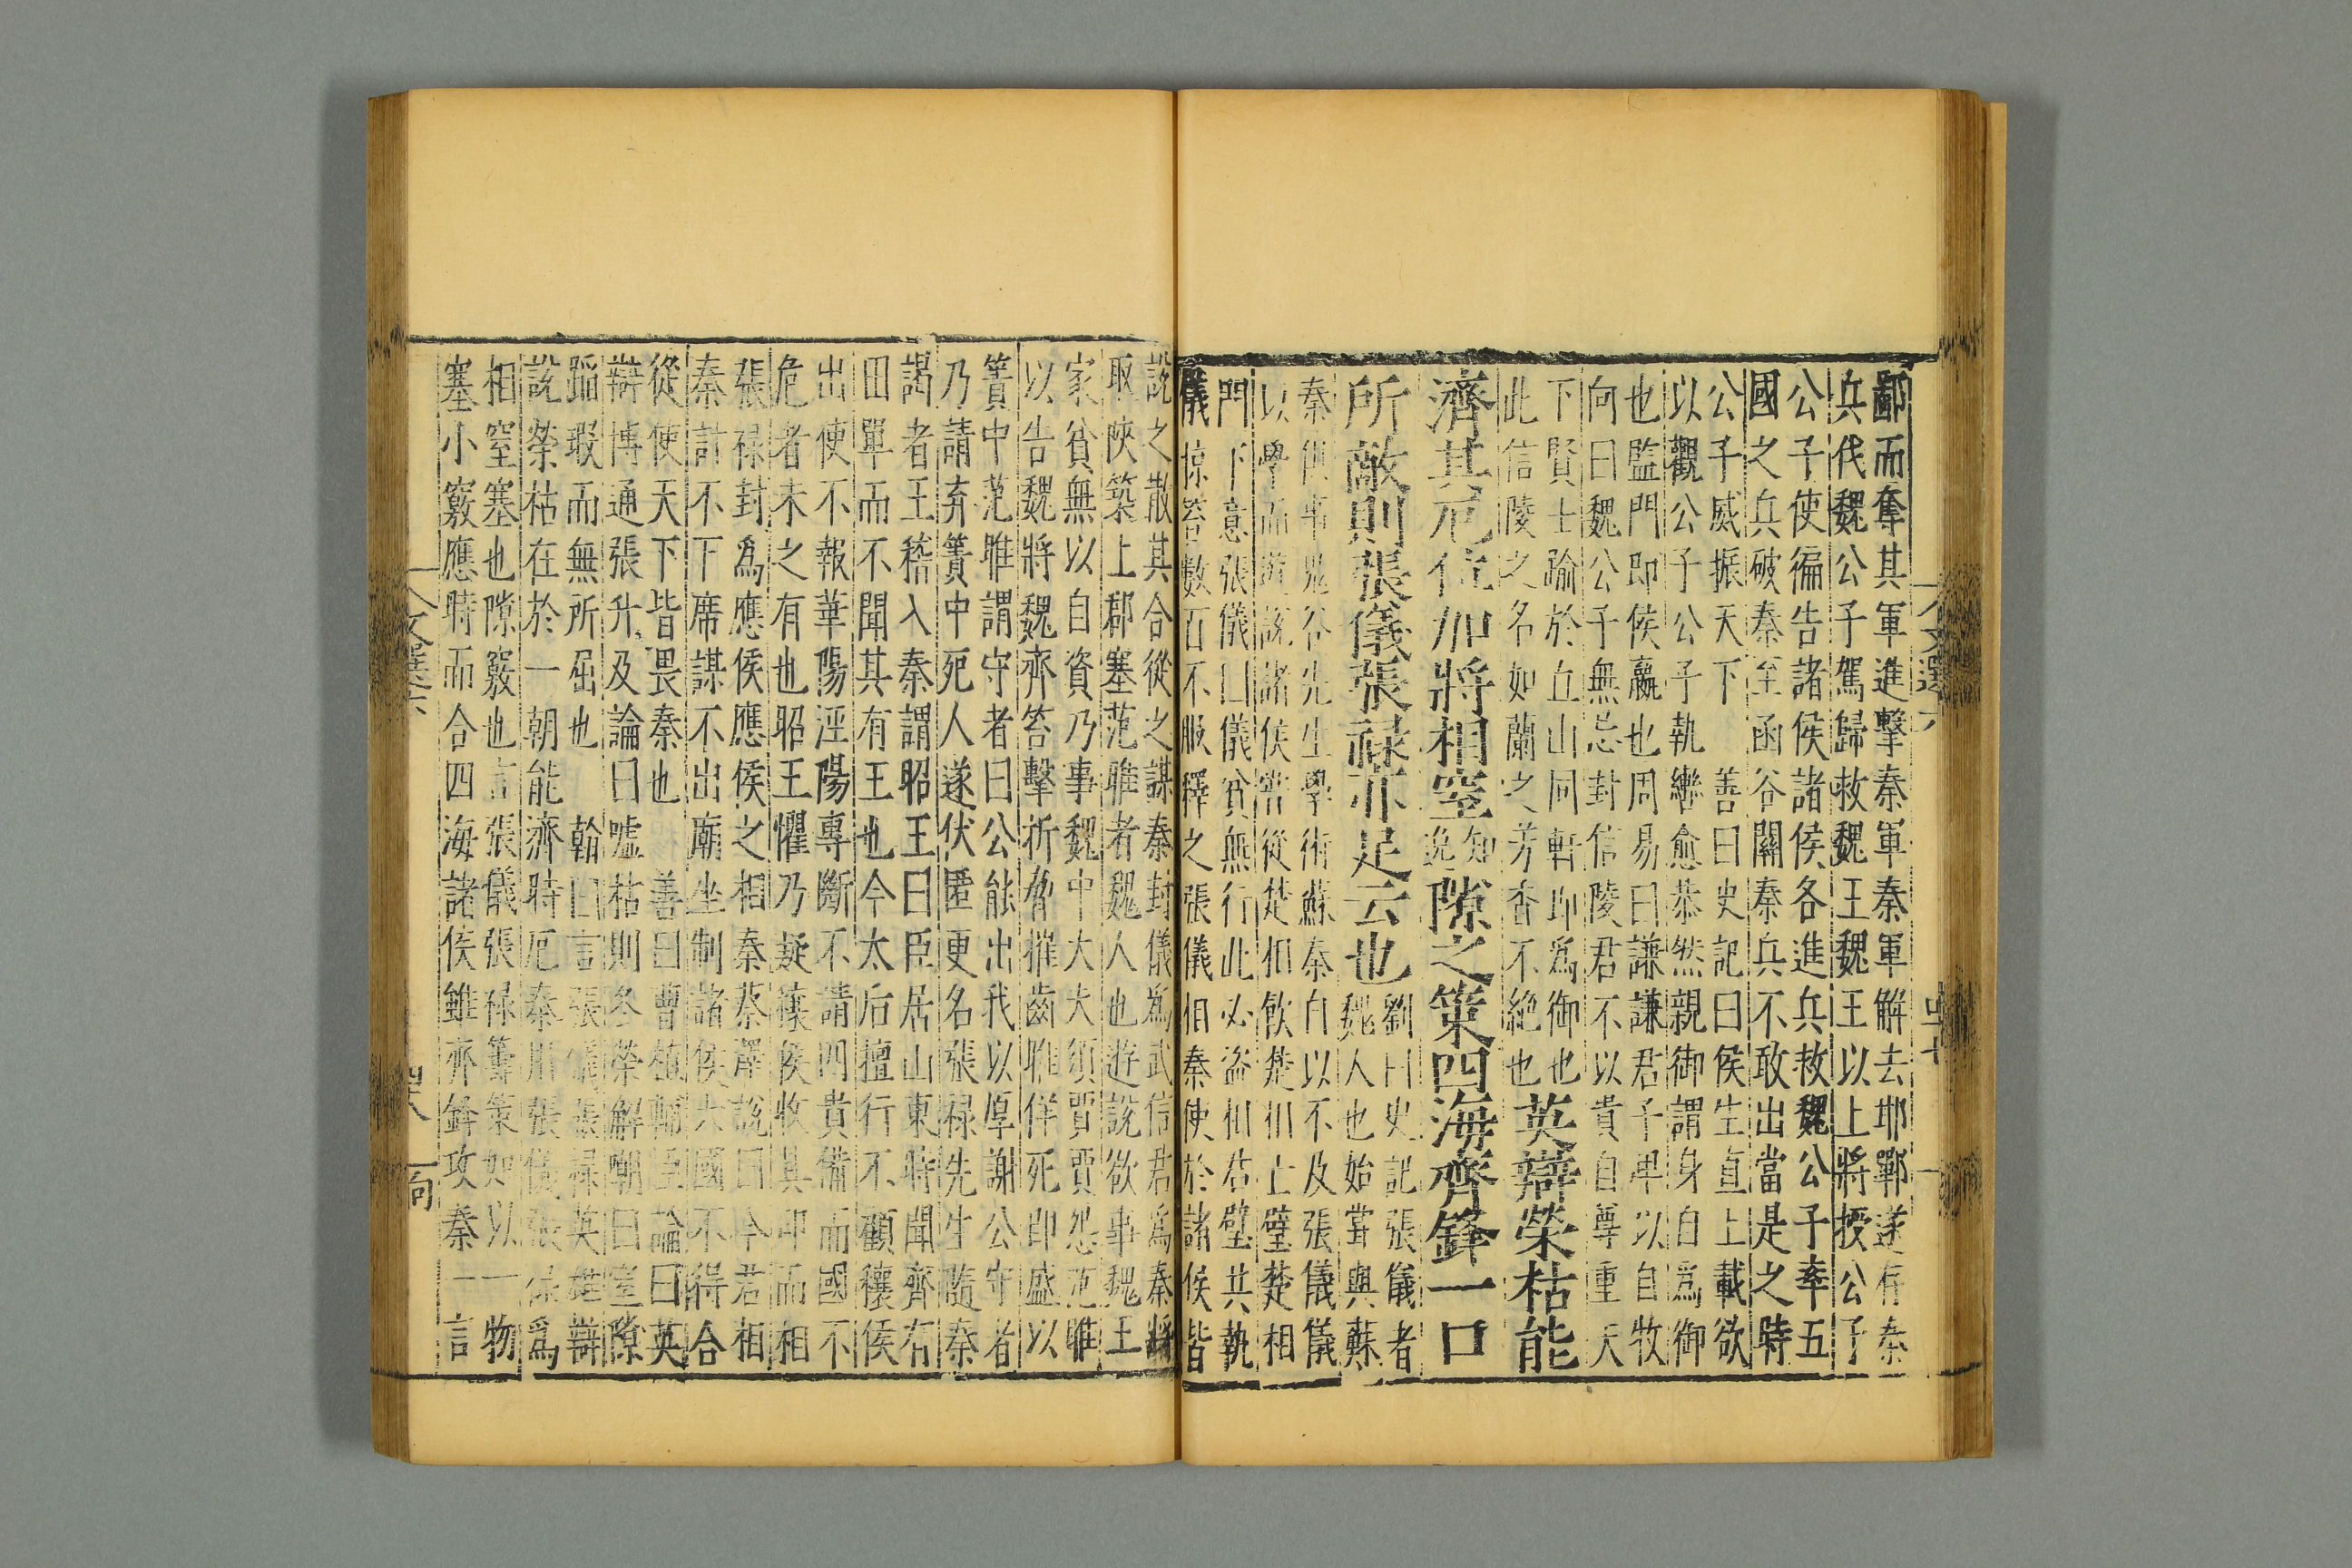 鄙而奪其軍進擊秦軍秦軍解去邯鄲遂存秦
兵伐魏公子駕歸救魏王魏王以上將授公子
公子使徧告諸侯諸侯各進兵救魏公子率五
國之兵破秦至函谷關秦兵不敢出當是之時
公子威振天下 善曰史記曰侯生直上載欲
以觀公子公子執轡愈恭然親御謂身自爲御
也監門即侯嬴也周易曰謙謙君子卑以自牧
向曰魏公子無忌封信陵君不以貴自尊重天
下賢士踰於丘山同軒即爲御也
此信陵之名如蘭之芳杳不絶也
英辯榮枯能
濟其厄位加將相窒
知
逸
隙之策四海齊鋒一口
所敵則張儀張祿亦足云也
劉曰史記張儀者
魏人也始甞與蘇
秦俱事鬼谷先生學術蘇秦自以不及張儀儀
以學而遊說諸侯甞從楚相飲楚相亡璧楚相
門下意張儀曰儀貧無行此必盗相君璧共執
儀掠笞數百不服釋之張儀相秦使於諸侯皆
說之散其合從之謀秦封儀爲武信君爲秦將
取陜築上郡塞范雎者魏人也遊說欲事魏王
家貧無以自資乃事魏中大夫須賈賈怨范雎
以告魏將魏齊笞擊折脅摧齒雎佯死即盛以
簀中范雎謂守者曰公能出我以厚謝公守者
乃請弃簀中死人遂伏匿更名張祿先生隨秦
謁者王稽入秦謂昭王曰臣居山東時聞齊有
田單而不聞其有王也今太后擅行不顧穰侯
出使不報華陽涇陽專斷不請四貴備而國不
危者未之有也昭王懼乃疑穰侯收其印而相
張祿封爲應侯應侯之相秦蔡澤說曰今君相
秦計不下席謀不出廟坐制諸侯六國不得合
從使天下皆畏秦也 善曰曹植輔臣論曰英
辯博通張升及論曰噓枯則冬榮解嘲曰窒隙
蹈瑕而無所屈也 翰曰言張儀張祿英雄辯
說榮枯在於一朝能濟時厄秦用張儀張祿爲
相窒塞也隙竅也言張儀張祿籌策如以一物
塞小竅應時而合四海諸侯雖齊鋒攻秦一言